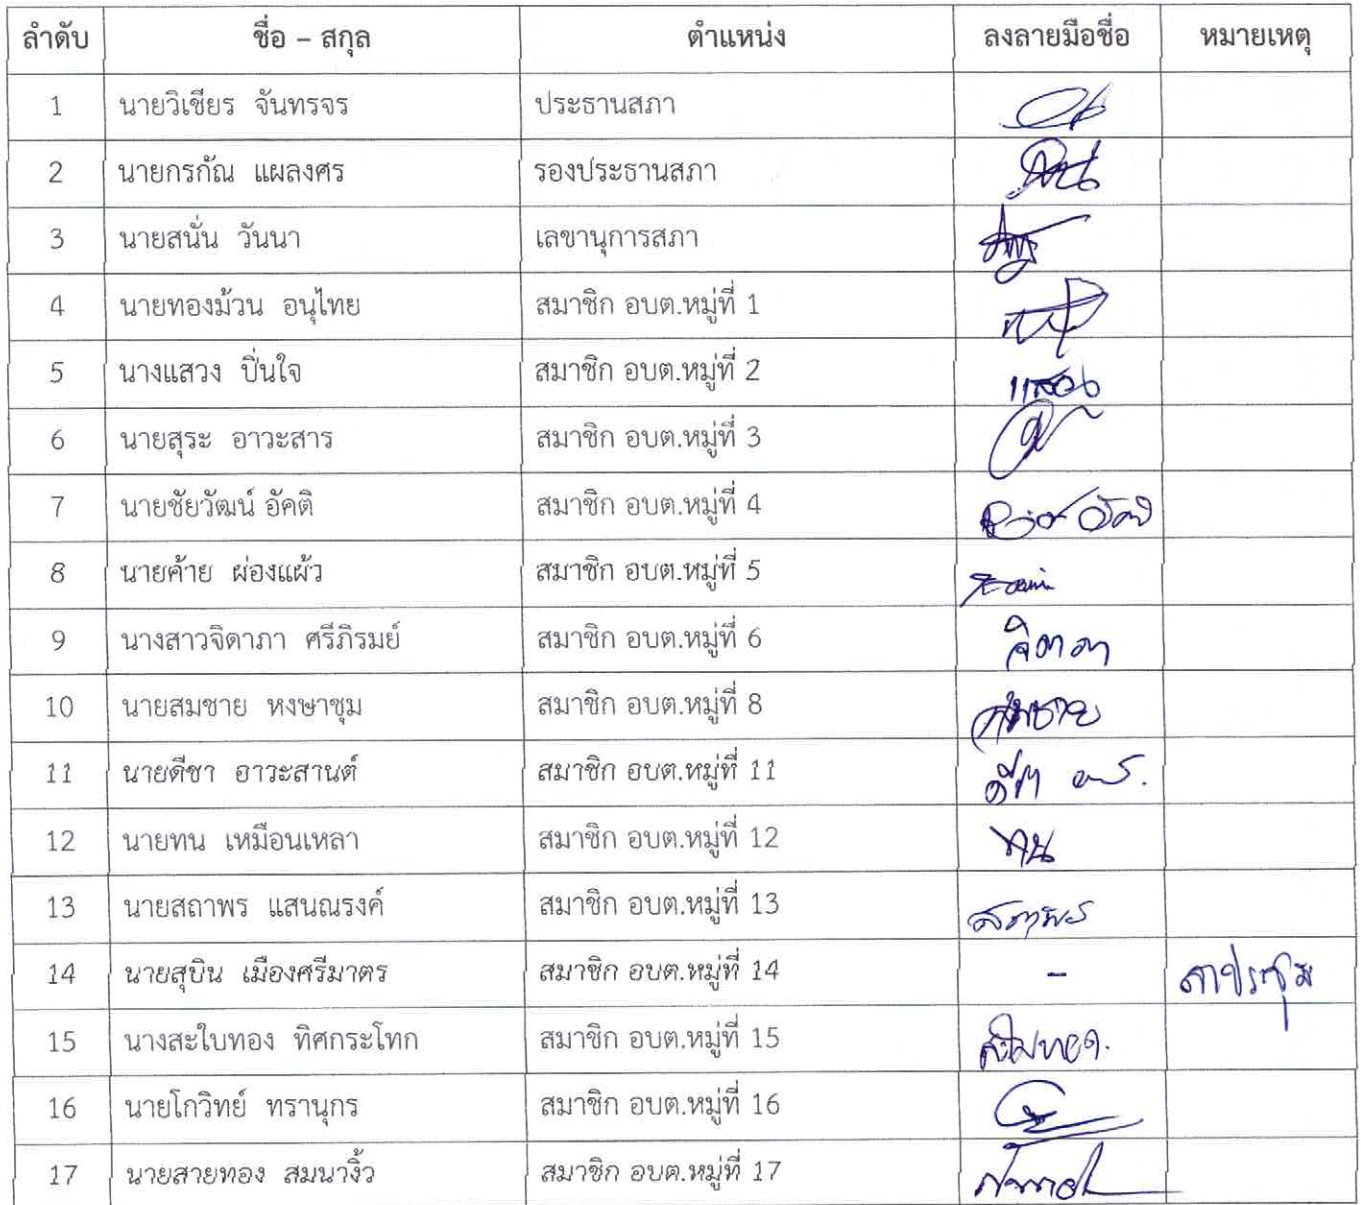 ลำดับ ชื่อ – สกุล ตำแหน่ง ลงลายมือชื่อ หมายเหตุ
1 นายวิเชียร จันทรจร ประธานสภา
2 นายกรกัณ แผลงศร รองประธานสภา
3 นายสนั่น วันนา เลขานุการสภา
4 นายทองม้วน อนุไทย สมาชิก อบต.หมู่ที่ 1
5 นางแสวง ปิ่นใจ สมาชิก อบต.หมู่ที่ 2 แสวง
6 นายสุระ อาวะสาร สมาชิก อบต.หมู่ที่ 3
7 นายชัยวัฒน์ อัคติ สมาชิก อบต.หมู่ที่ 4
8 นายค้าย ผ่องแผ้ว สมาชิก อบต.หมู่ที่ 5
9 นางสาวจิดาภา ศรีภิรมย์ สมาชิก อบต.หมู่ที่ 6 จิดาภา
10 นายสมชาย หงษาชุม สมาชิก อบต.หมู่ที่ 8 สมชาย
11 นายดีชา อาวะสานต์ สมาชิก อบต.หมู่ที่ 11
12 นายทน เหมือนเหลา สมาชิก อบต.หมู่ที่ 12 ทน
13 นายสถาพร แสนณรงค์ สมาชิก อบต.หมู่ที่ 13 สถาพร
14 นายสุบิน เมืองศรีมาตร สมาชิก อบต.หมู่ที่ 14 – ลาประชุม
15 นางสะใบทอง ทิศกระโทก สมาชิก อบต.หมู่ที่ 15
16 นายโกวิทย์ ทรานุกร สมาชิก อบต.หมู่ที่ 16
17 นายสายทอง สมนางิ้ว สมาชิก อบต.หมู่ที่ 17